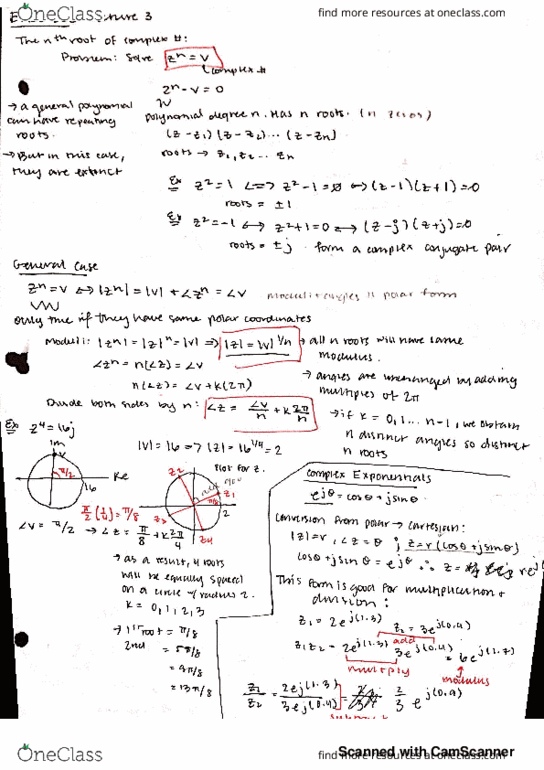 OneClass
find more resources at oneclass.com
Lecture 3
The nth root of complex #:
Problem: Solve zⁿ = v
complex #
zⁿ - v = 0
→ a general polynomial
can have repeating
roots.
polynomial degree n. Has n roots. (n zeros)
(z - z₁)(z - z₂)... (z - zn)
roots → z₁, z₂ ... zn
→ But in this case,
they are
Ex z² = 1 <=> z² - 1 = 0 <-> (z-1)(z+1) = 0
roots = ±1
Ex z² = -1 <-> z² + 1 = 0 <-> (z-j)(z+j) = 0
roots = ±j form a complex conjugate pair
General Case
zⁿ = v <-> |zⁿ| = |v| + ∠zⁿ = ∠v
polar form
only true if they have same polar coordinates
Moduli: |zⁿ| = |z|ⁿ = |v| => |z| = |v|^1/n
→ all n roots will have same
modulus.
∠zⁿ = n(∠z) = ∠v
n(∠z) = ∠v + k(2π)
→ angles are unchanged by adding
multiples of 2π
Divide both sides by n: ∠z = ∠v/n + k 2π/n
→ if k = 0, 1 ... n-1, we obtain
n distinct angles so distinct
n roots
Ex z⁴ = 16j
Im
v
π/2
Re
16
|v| = 16 => |z| = 16^1/4 = 2
Plot for z.
z₂
z₁
π/8
2
z₃
z₄
π/2 (1/4) = π/8
∠v = π/2 -> ∠z = π/8 + k 2π/4
→ as a result, 4 roots
will be equally spaced
on a circle w/ radius 2.
k = 0, 1, 2, 3
→ 1st root = π/8
2nd = 5π/8
= 9π/8
= 13π/8
Complex Exponentials
e^jθ = cosθ + jsinθ
Conversion from polar → cartesian:
|z| = r, ∠z = θ ; z = r(cosθ + jsinθ)
cosθ + jsinθ = e^jθ ∴ z =
This form is good for multiplication +
division:
z₁ = 2e^j(1.3) z₂ = 3e^j(0.4)
add
z₁z₂ = 2e^j(1.3) 3e^j(0.4) = 6e^j(1.7)
multiply
modulus
z₁/z₂ = 2e^j(1.3) / 3e^j(0.4) = 2/3 e^j(0.9)
OneClass
Scanned with CamScanner
find more resources at oneclass.com